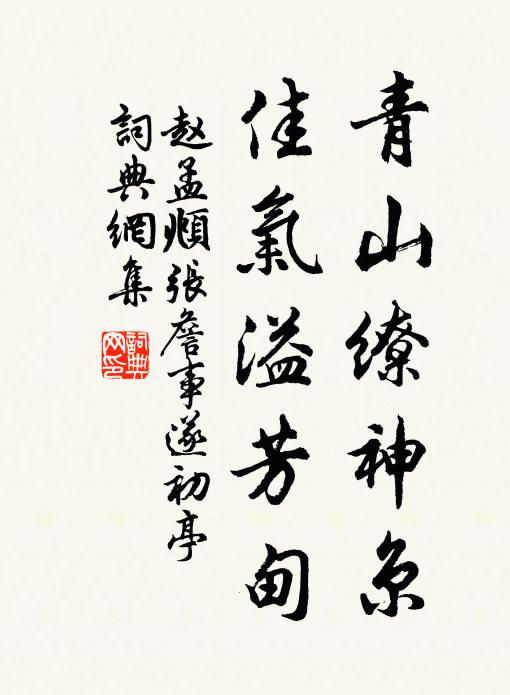 青山缭神京
佳氣溢芳甸
赵孟頫張詹事遂初亭
詞典網集
詞典網印